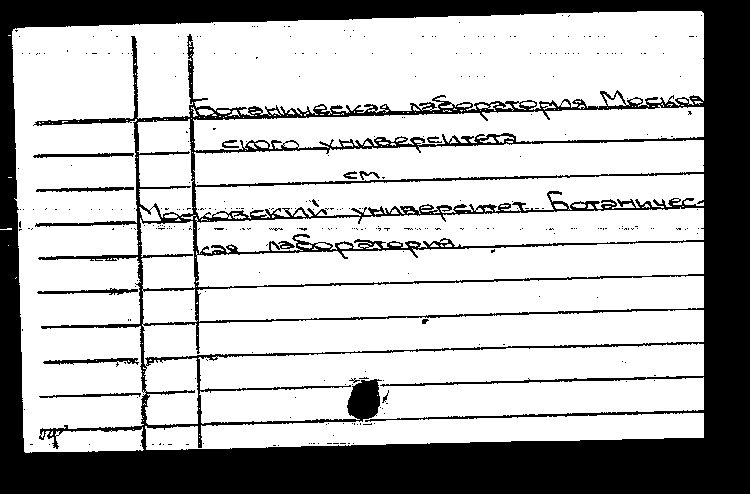 Ботаническая лаборатория Москов
ского университета
см.
Московский университет. Ботаничес-
кая лаборатория.